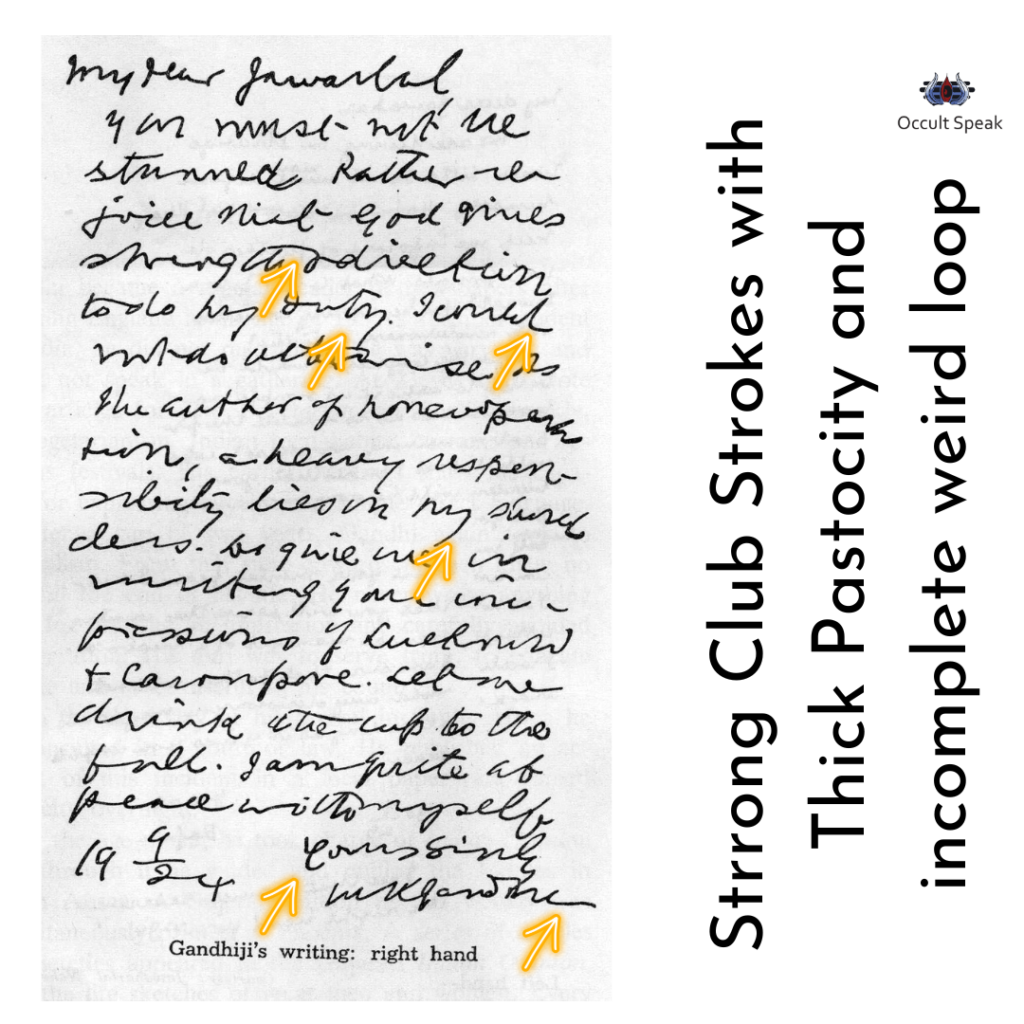 My dear Jawarlal
You must not be
stunned. Rather re
joice that God gives
strength & direction
to do my duty. I could
not do otherwise. As
the author of noncoopera
tion, a heavy respon-
sibility lies on my shoul
ders. Do give me in
writing your im-
pressions of Lucknow
& Cawnpore. Let me
drink the cup to the
full. I am quite at
peace with myself
19 9/24 Yours Sincly
MKGandhi
Gandhiji's writing: right hand
Occult Speak
Strrong Club Strokes with
Thick Pastocity and
incomplete weird loop